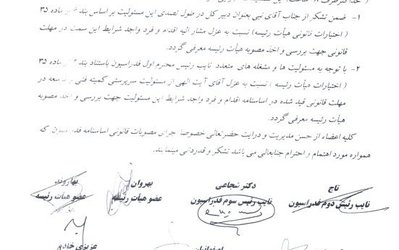 ۱- ضمن تشکر از جناب آقای نبی بعنوان دبیر کل در طول تصدی این مسئولیت بر اساس بند ماده ۳۵
( اختیارات قانونی هیأت رئیسه ) نسبت به عزل مشار الیه اقدام و فرد واجد شرایط این سمت در مهلت
قانونی جهت بررسی و اخذ مصوبه هیأت رئیسه معرفی گردد.
۲- با توجه به مسئولیت ها و مشغله های متعدد نایب رئیس محترم اول فدراسیون باستناد بند ماده ۳۵
( اختیارات هیأت رئیسه ) نسبت به عزل آقای آیت الهی از مسئولیت سرپرستی کمیته فنی و توسعه در
مهلت قانونی قید شده در اساسنامه اقدام و فرد واجد شرایط این مسئولیت جهت بررسی و اخذ مصوبه
هیأت رئیسه معرفی گردد.
کلیه اعضاء از حسن مدیریت و درایت حضرتعالی خصوصا اجرای مصوبات قانونی اساسنامه فدراسیون که
همواره مورد اهتمام و احترام جنابعالی می باشد تشکر و قدردانی مینماید.
تاج دکتر شجاعی بهروان بهاروند
نایب رئیس دوم فدراسیون نایب رئیس سوم فدراسیون عضو هیأت رئیسه عضو هیأت رئیسه
عزیزی خادم